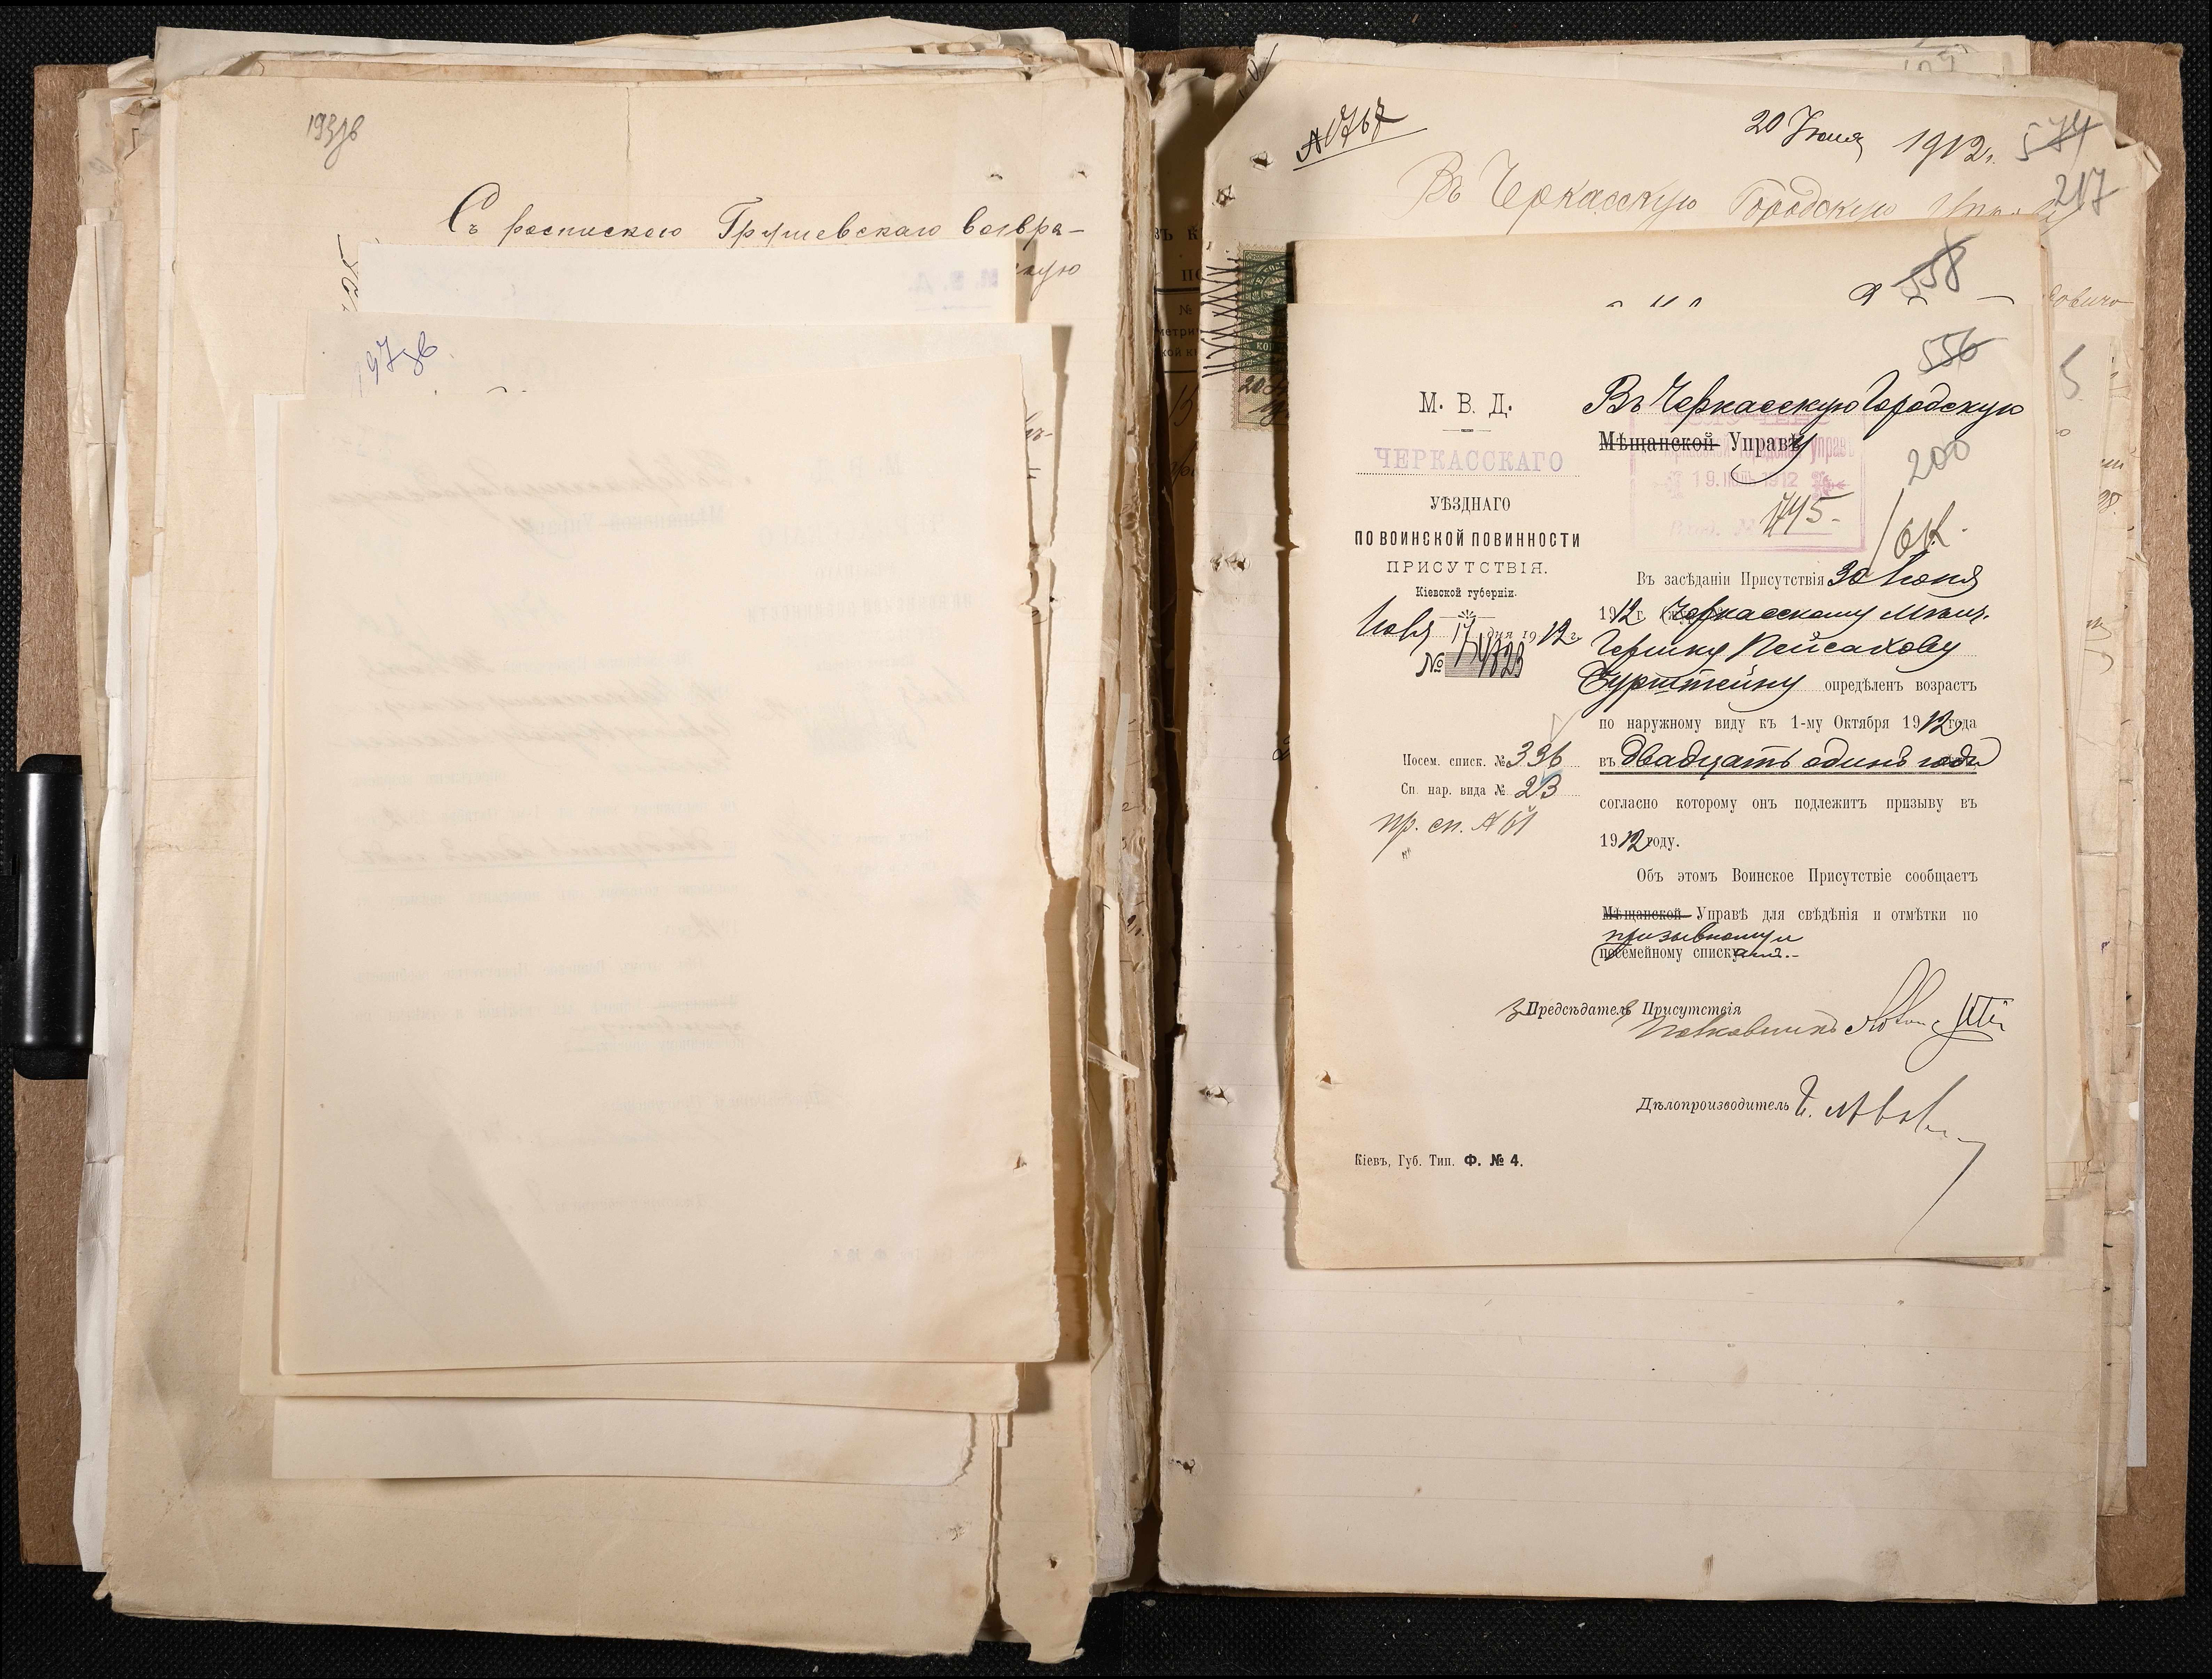 193зв
Съ роспискою Грушевскаго возвра-
скую
М. В. Д.
197зв.
№ 1767
20 Июля 1912 г.
574
217
Въ Черкасскую Городскую Управу
558
556
М. В. Д.
ЧЕРКАССКАГО
УѢЗДНАГО
ПО ВОИНСКОЙ ПОВИННОСТИ
ПРИСУТСТВІЯ.
Кіевской губерніи.
Іюля 17 дня 1912 г.
№ 4323
Посем. списк. № 336
Сп. нар. вида № 23
пр. сп. № 61
Въ Черкасскую Городскую
Мѣщанской Управѣ
200
19. ІЮЛЬ 1912
1745.
Въ засѣданіи Присутствія 30 Іюня
1912 г. Черкасскому мѣщ.
Гершку Пейсахову
Бурштейну опредѣленъ возрастъ
по наружному виду къ 1-му Октября 1912 года
въ двадцать одинъ годъ
согласно которому онъ подлежитъ призыву въ
1912 году.
Объ этомъ Воинское Присутствіе сообщаетъ
Мѣщанской Управѣ для свѣдѣнія и отмѣтки по
призывному и
посемейному спискамъ.-
З Предсѣдателя Присутствія
Полковникъ
Дѣлопроизводитель
Кіевъ, Губ. Тип. Ф. № 4.